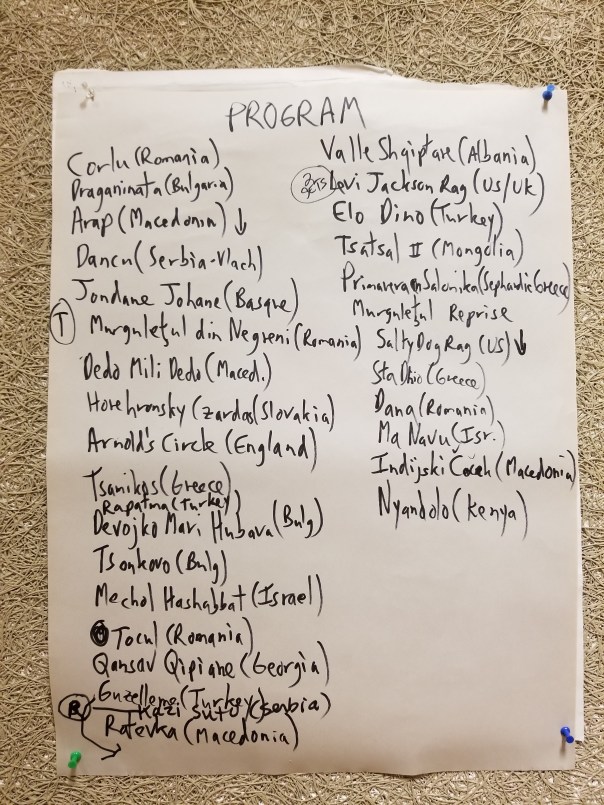 PROGRAM
Corlu (Romania)
Draganinata (Bulgaria)
Arap (Macedonia) ↓
Dancu (Serbia-Vlach)
Jondane Johane (Basque)
T Murgulețul din Negreni (Romania)
Dedo Mili Dedo (Maced.)
Horehronsky Czardas (Slovakia)
Arnold's Circle (England)
Tsamikos (Greece)
Rapatma (Turkey)
Devojko Mari Hubava (Bulg)
Tsonkovo (Bulg)
Mechol Hashabbat (Israel)
Tocul (Romania)
Qansav Qipiane (Georgia)
Guzelleme (Turkey)
R Kazi Suto (Serbia)
Ratevka (Macedonia)
Valle Shqiptare (Albania)
Levi Jackson Rag (US/UK)
Elo Dino (Turkey)
Tsatsal II (Mongolia)
Primavera en Salonika (Sephardic Greece)
Murgulețul Reprise
Salty Dog Rag (US) ↓
Sta Dhio (Greece)
Dana (Romania)
Ma Navu (Isr.)
Indijski Čoček (Macedonia)
Nyandolo (Kenya)